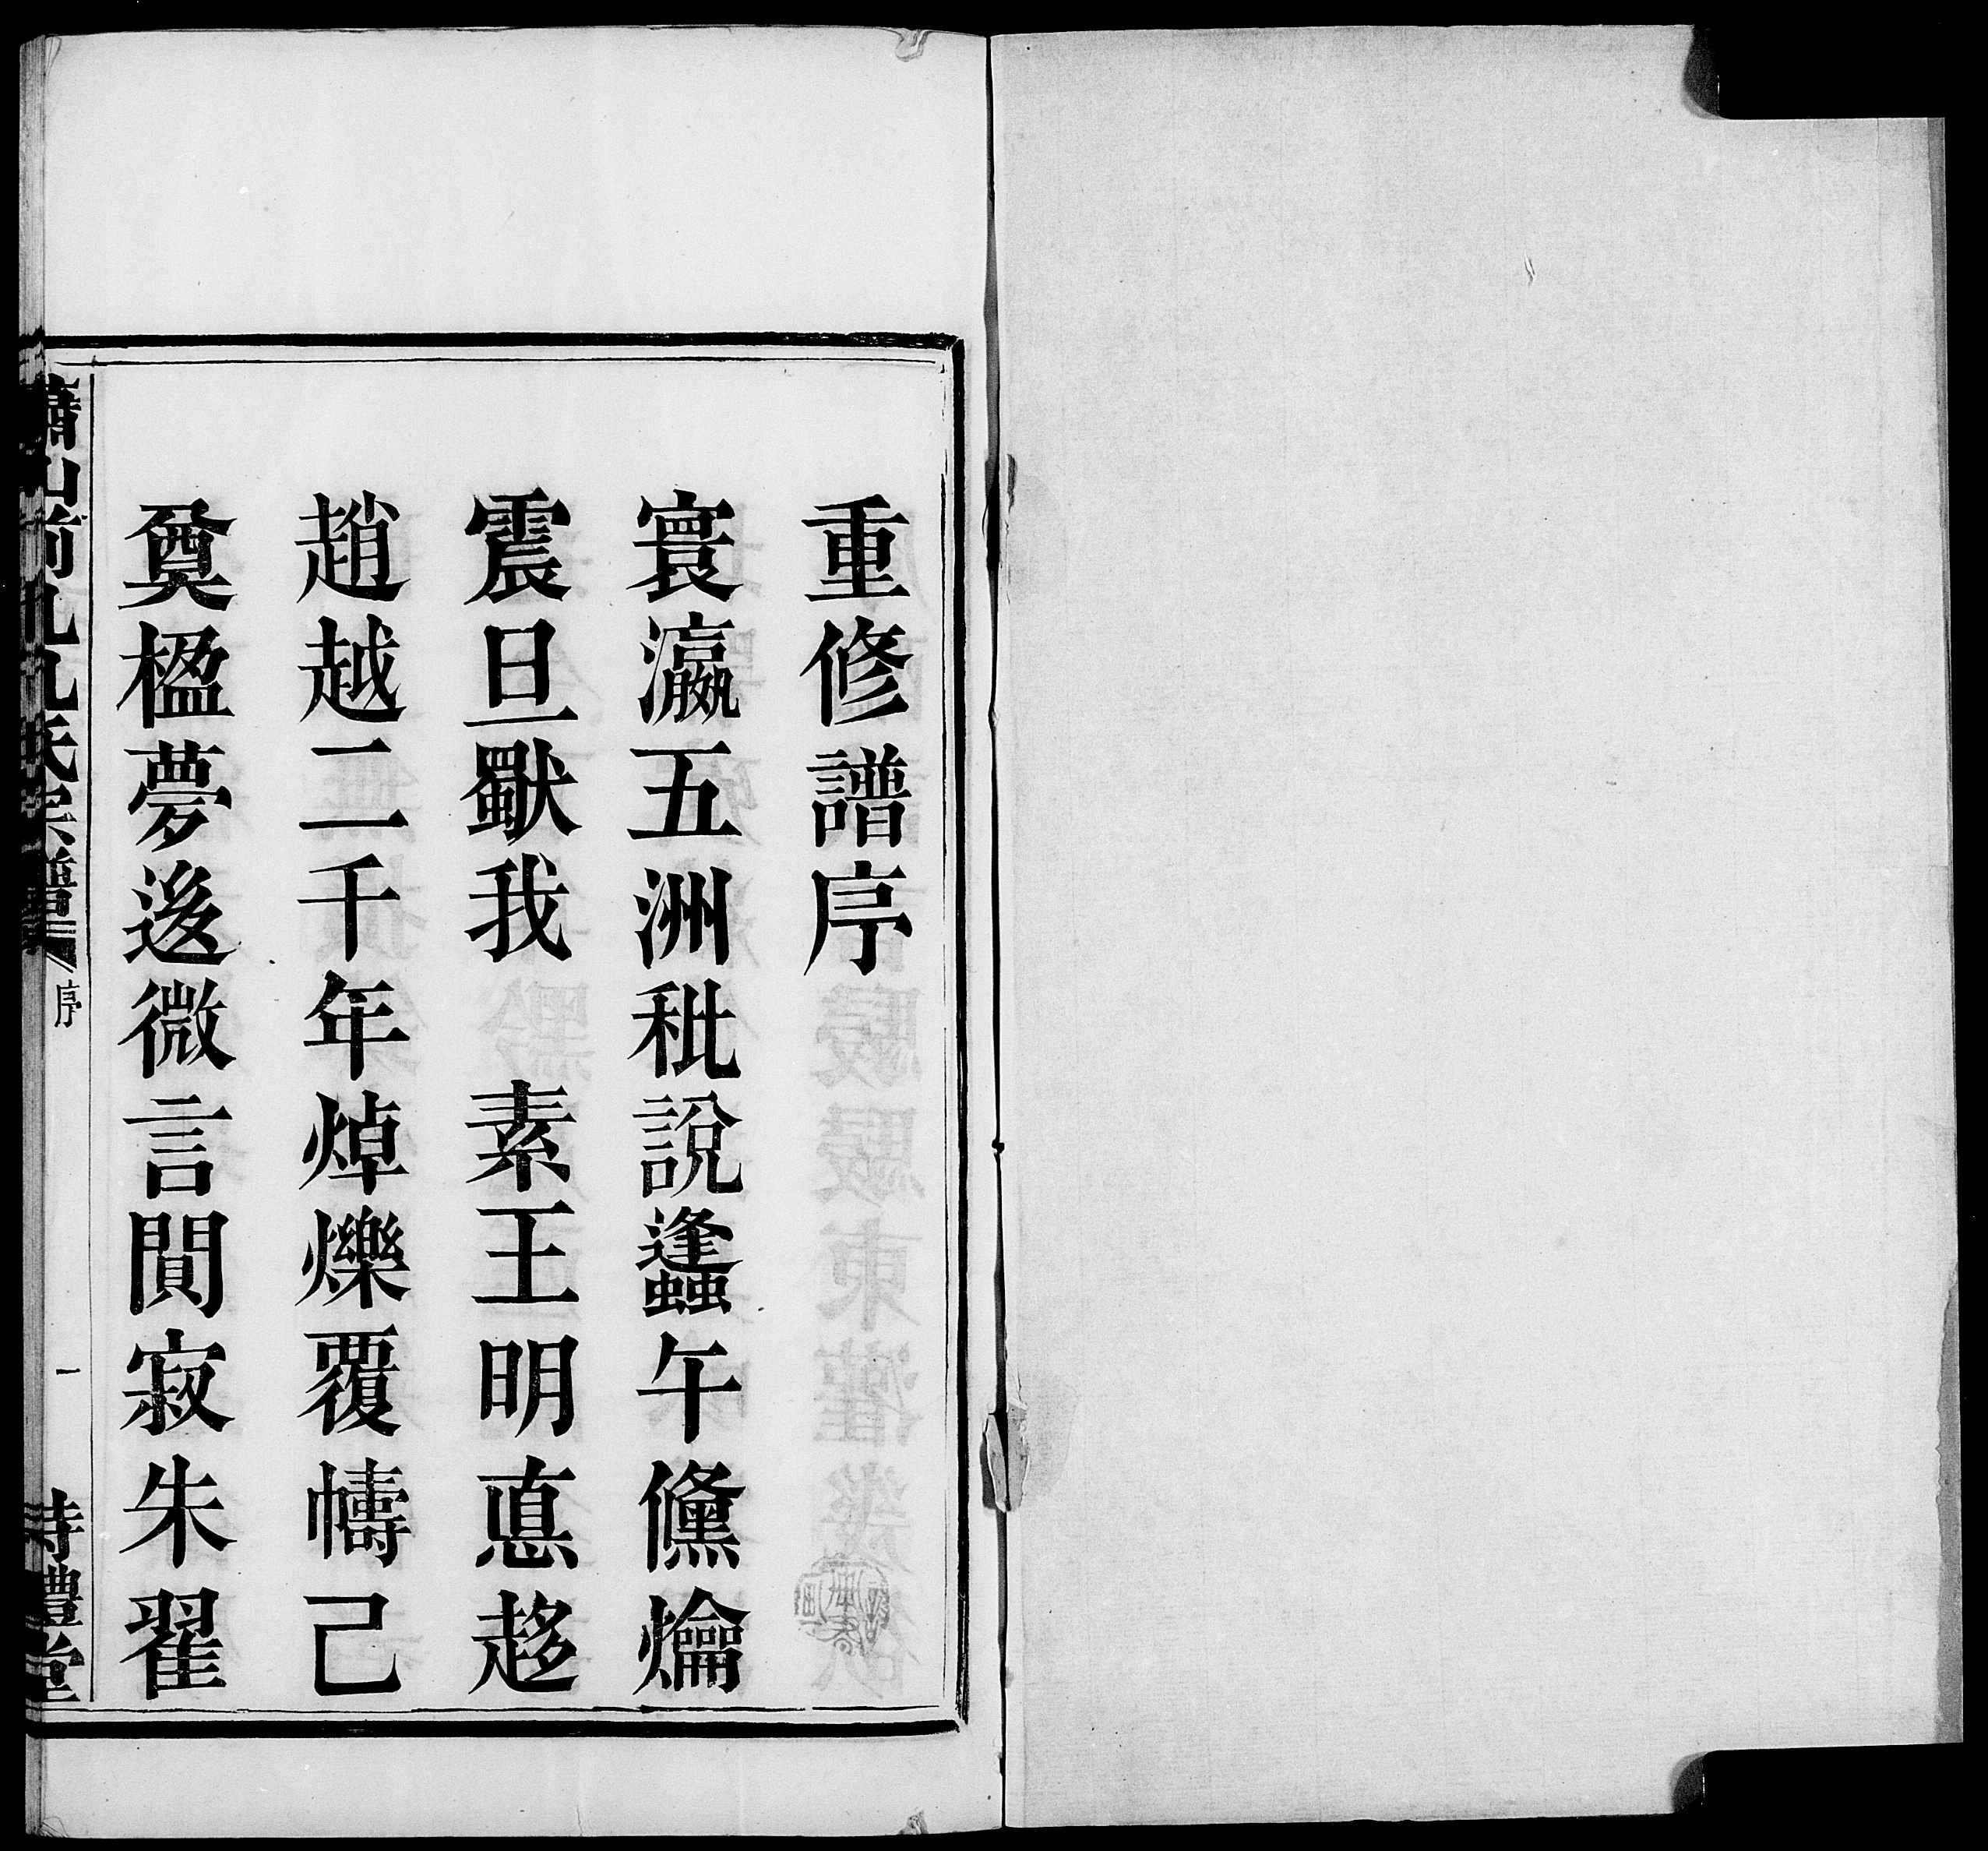 重修譜序
寰瀛五洲秕說蠭午儵爚
震旦獸我 素王明悳趍
趙越二千年焯爍覆幬己
奠楹夢逡微言閒寂朱翟
蕭山前孔孔氏宗譜 序 一 詩禮堂